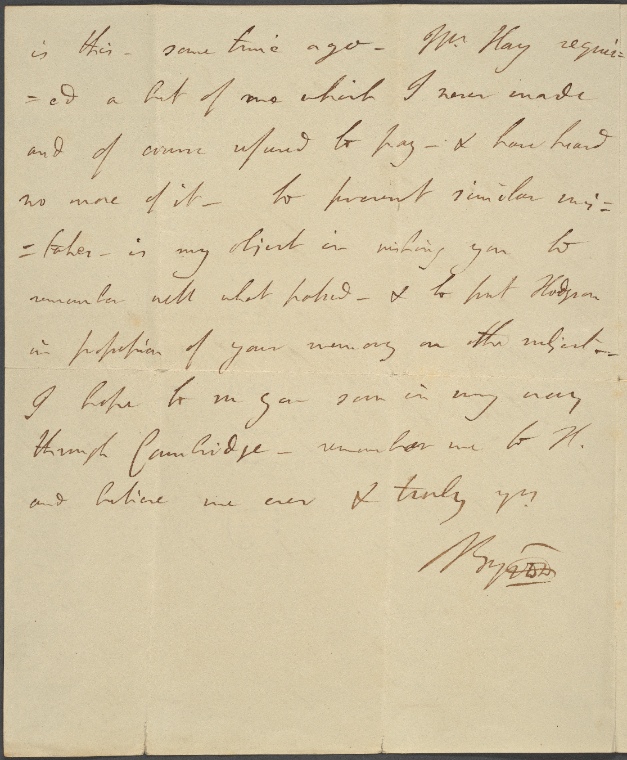 is this - some time ago - Mr. Hay requir=
=ed a bet of me which I never made
and of course refused to pay - & have heard
no more of it - to prevent similar mis=
=takes - is my object in wishing you to
remember well what passed - & to put Hodgson
in possession of your memory on the subject. -
I hope to see you soon in my way
through Cambridge - remember me to H.
and believe me ever & truly yrs
Byron